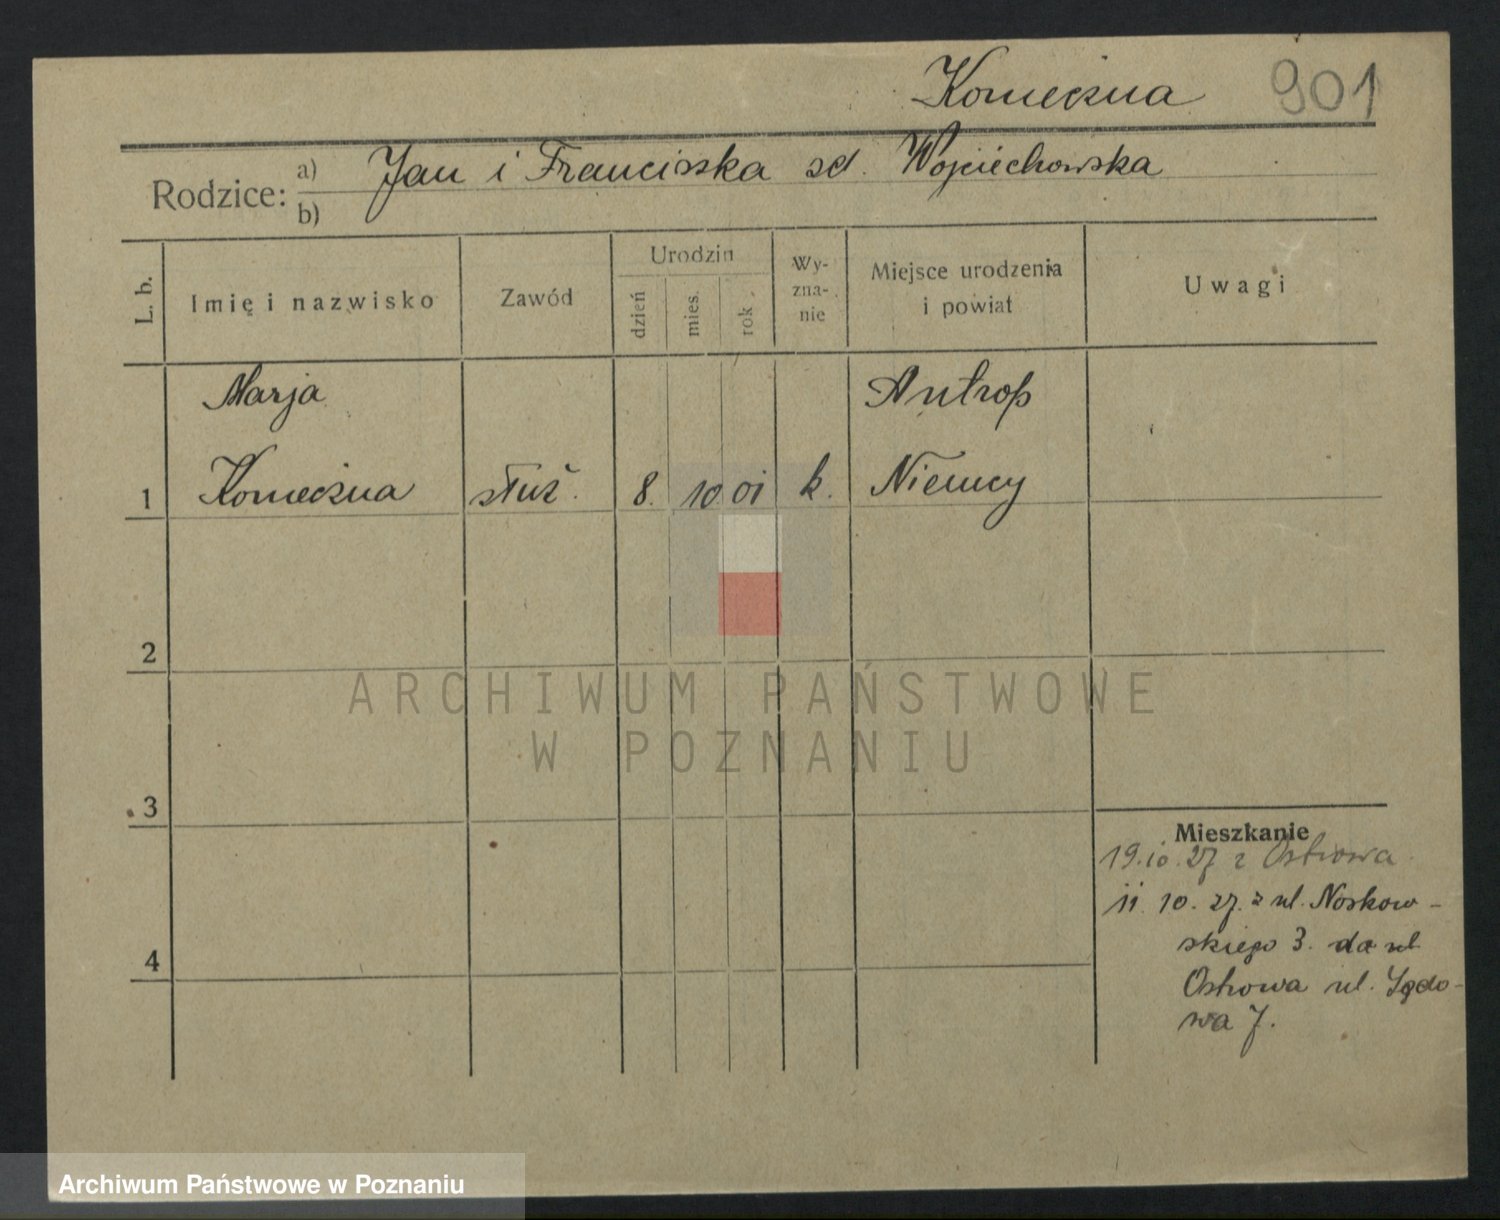 Konieczna 901
Rodzice: a) Jan i Franciszka zd. Wojciechowska
b)
L. b. Imię i nazwisko Zawód Urodzin dzień mies. rok Wyzna-nie Miejsce urodzenia i powiat Uwagi
Marja Antrop
1 Konieczna służ. 8. 10 01 k. Niemcy
2
ARCHIWUM PAŃSTWOWE
W POZNANIU
3
Mieszkanie
19.10.27 z Ostrowa
11. 10. 27. z ul. Noskow-
skiego 3. do
4
Ostrowa ul.
7.
Archiwum Państwowe w Poznaniu